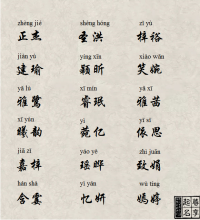 zhèng jié shèng hóng zǐ yù
正杰 圣洪 梓裕
jiàn yú yǐng xīn xiào wǎn
建瑜 颖昕 笑婉
yǎ lù xī mín yǎ xī
雅鹭 睿珉 雅茜
xī yùn yì yī sī
曦韵 依思
jiā zǐ yáo yè zhì juān
嘉梓 瑶晔 致娟
hán shà yì yán wǔ tíng
含霎 忆妍